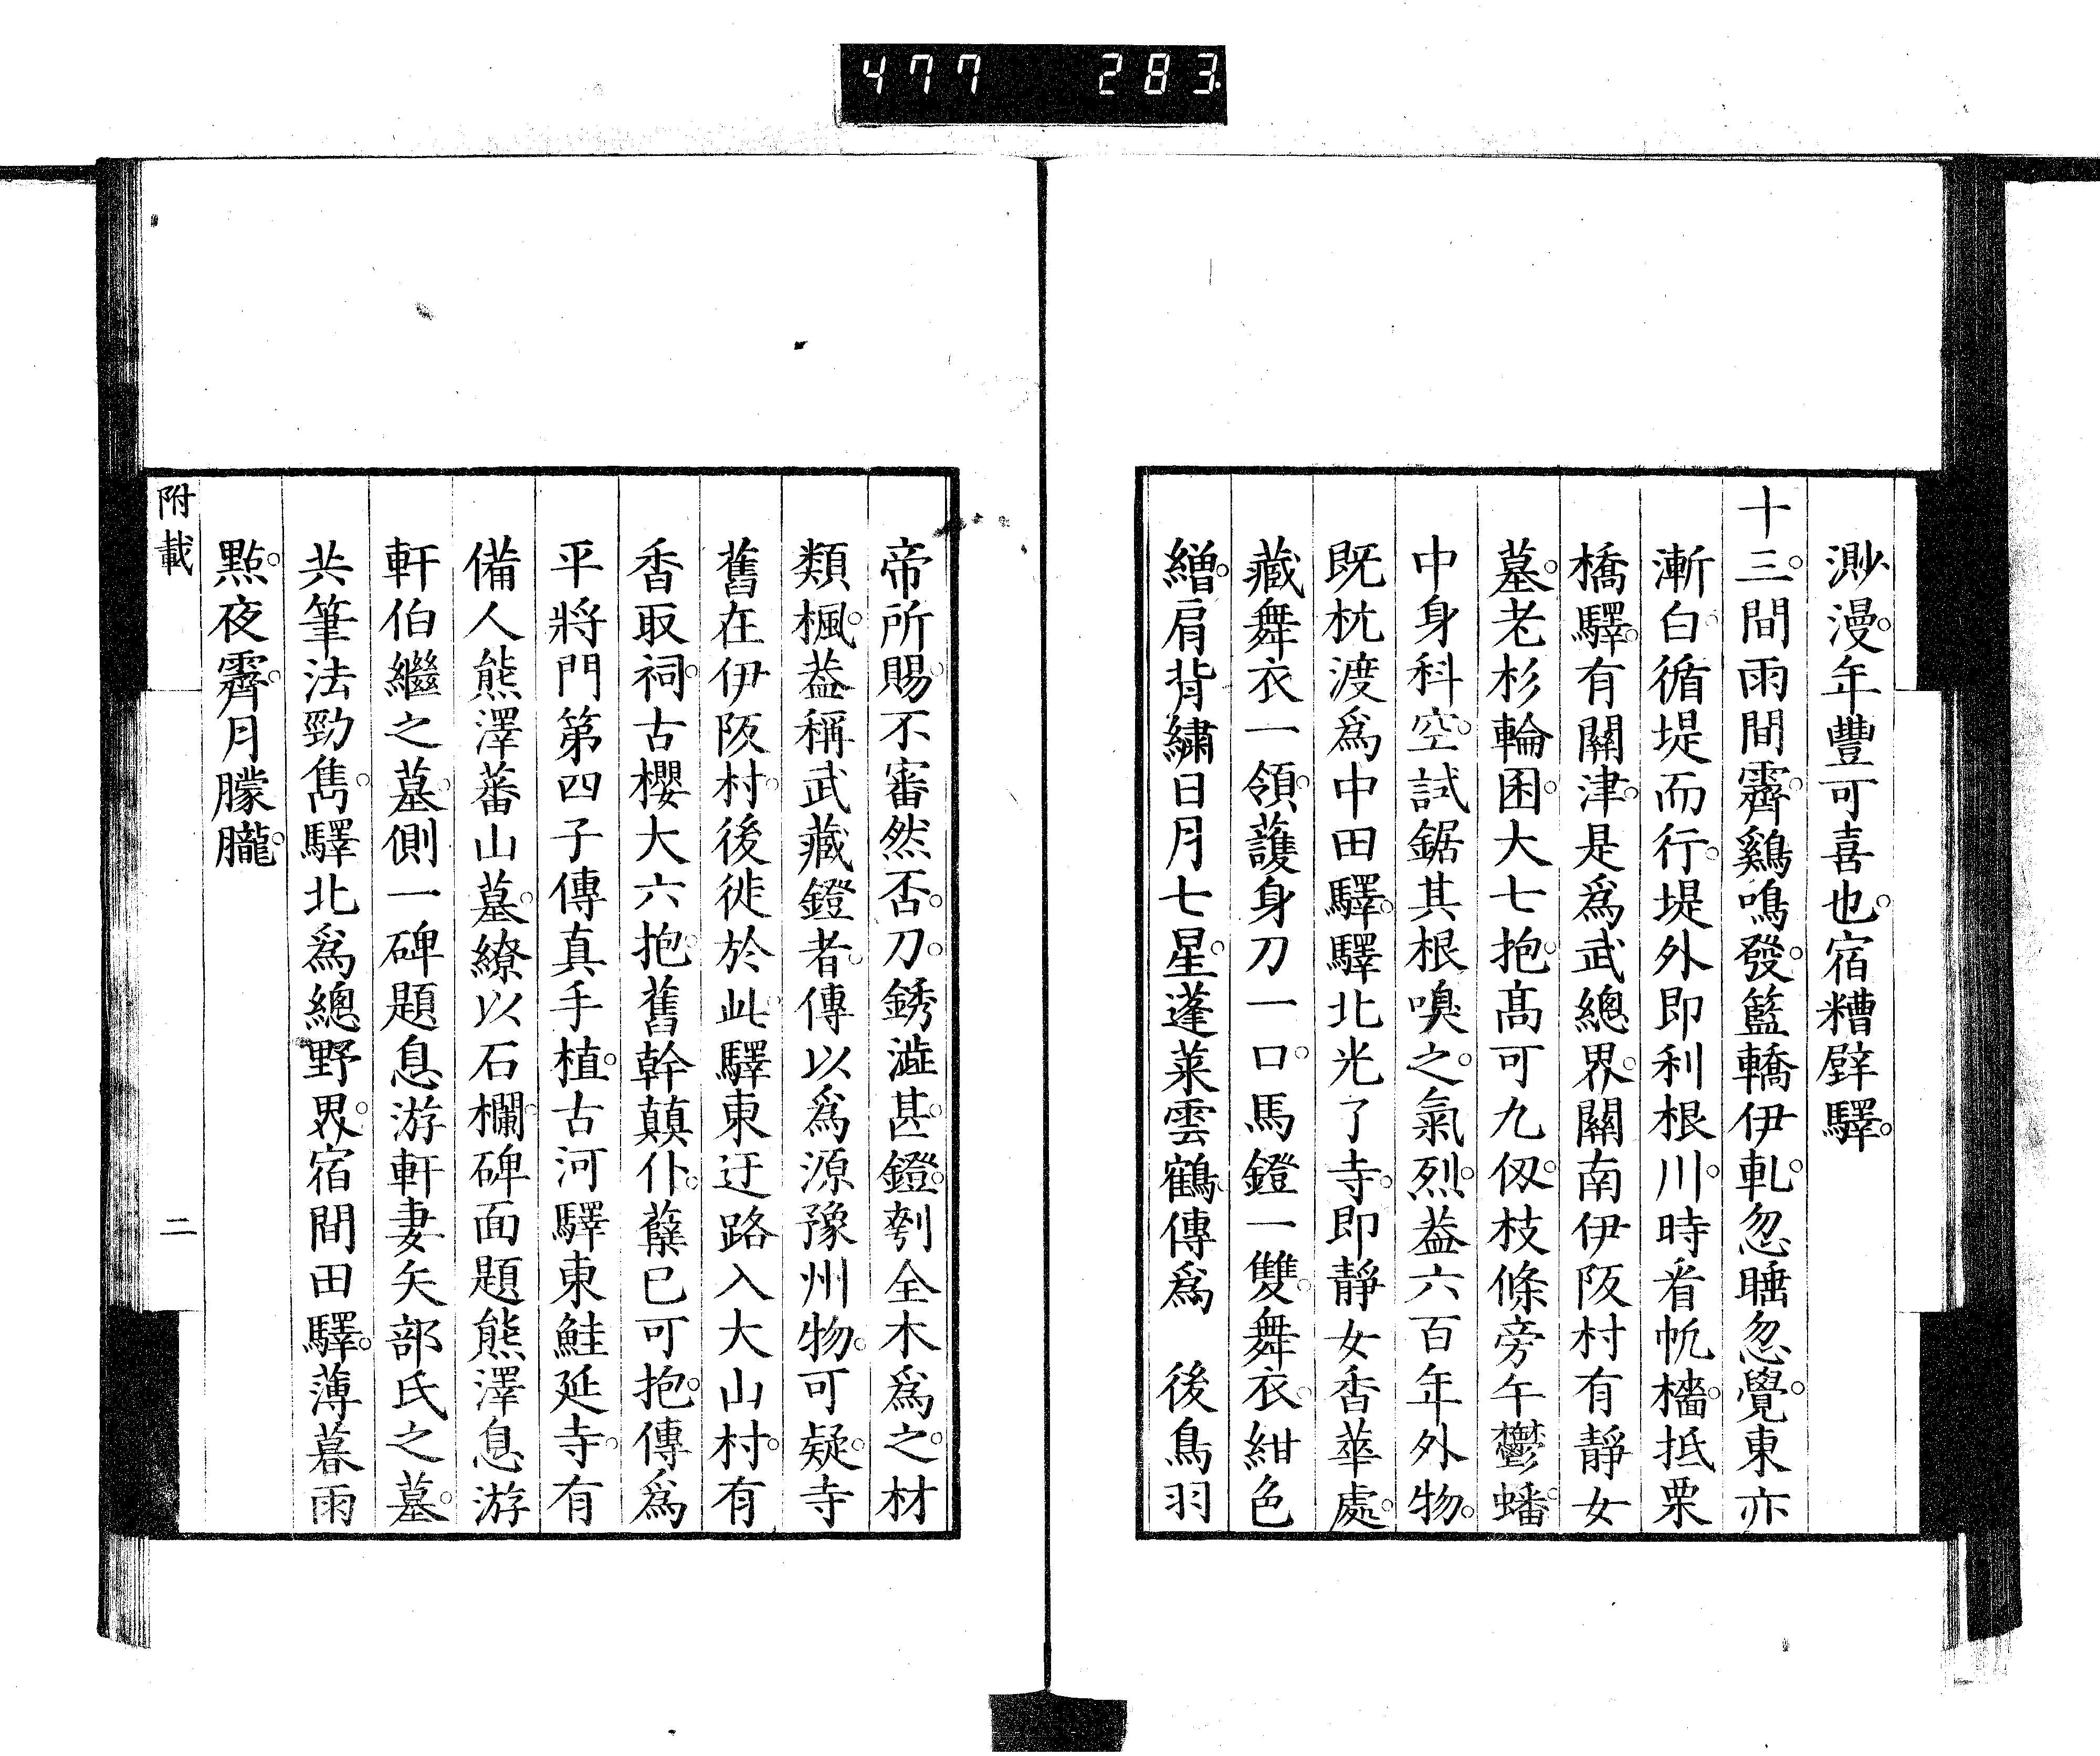 477 283
渺漫。年豐可喜也。宿糟壁驛。
十三。間雨間霽。鷄鳴發。籃轎伊軋。忽睡忽覺。東亦
漸白。循堤而行。堤外即利根川。時看帆檣。抵栗
橋驛。有關津。是爲武總界。關南伊阪村有靜女
墓。老杉輪囷。大七抱。高可九仭。枝條旁午鬱蟠。
中身科空。試鋸其根嗅之。氣烈。葢六百年外物。
既杭渡爲中田驛。驛北光了寺。即靜女香華處。
藏舞衣一領。護身刀一口。馬鐙一雙。舞衣。紺色
繒。肩背繡日月七星。蓬萊雲鶴。傳爲　後鳥羽
帝所賜。不審然否。刀。銹澁甚。鐙。刳全木爲之。材
類楓。葢稱武藏鐙者。傳以爲源豫州物。可疑。寺
舊在伊阪村。後徙於此。驛東迂路入大山村。有
香取祠。古櫻大六抱。舊幹顛仆。蘖已可抱。傳爲
平將門第四子傳真手植。古河驛東鮭延寺。有
備人熊澤蕃山墓。繚以石欄。碑面題熊澤息游
軒伯繼之墓。側一碑題息游軒妻矢部氏之墓。
共筆法勁雋。驛北爲總野界。宿間田驛。薄暮雨
點。夜霽。月朦朧。
附載
二